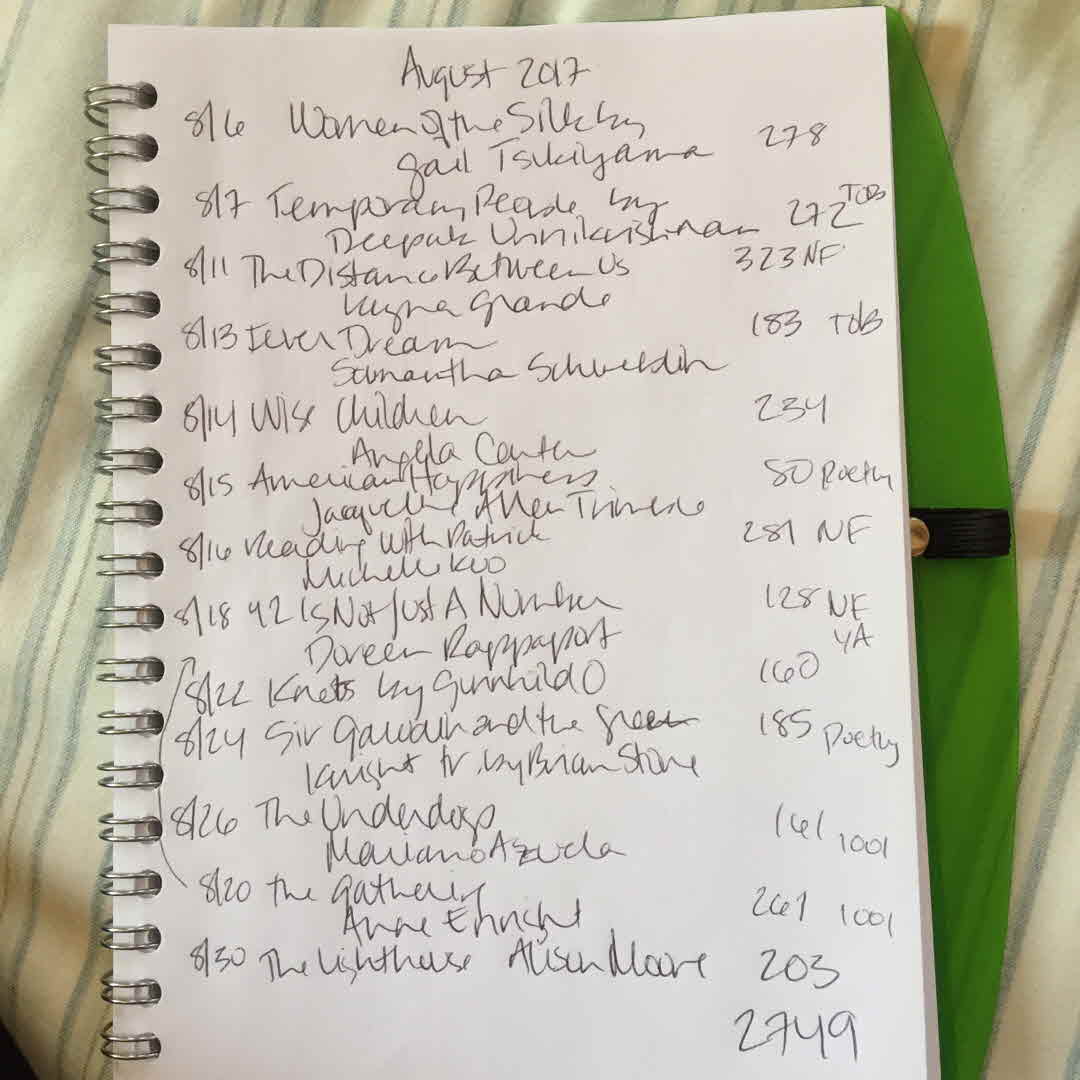 August 2017
8/6 Women of the Silk by 278
Gail Tsukiyama
8/7 Temporary People by 272 TOB
Deepak Unnikrishnan
8/11 The Distance Between Us 323 NF
Reyna Grande
8/13 Fever Dream 183 TOB
Samantha Schweblin
8/14 Wise Children 234
Angela Carter
8/15 American Happiness 80 Poetry
Jacqueline Allen Trimble
8/16 Reading With Patrick 281 NF
Michelle Kuo
8/18 42 Is Not Just A Number 128 NF
Doreen Rappaport YA
8/22 Knots by Gunnhild O 160
8/24 Sir Gawain and the Green 185 Poetry
Knight tr. by Brian Stone
8/26 The Underdogs 161 1001
Mariano Azuela
8/20 The Gathering 261 1001
Anne Enright
8/30 The Lighthouse Alison Moore 203
2749